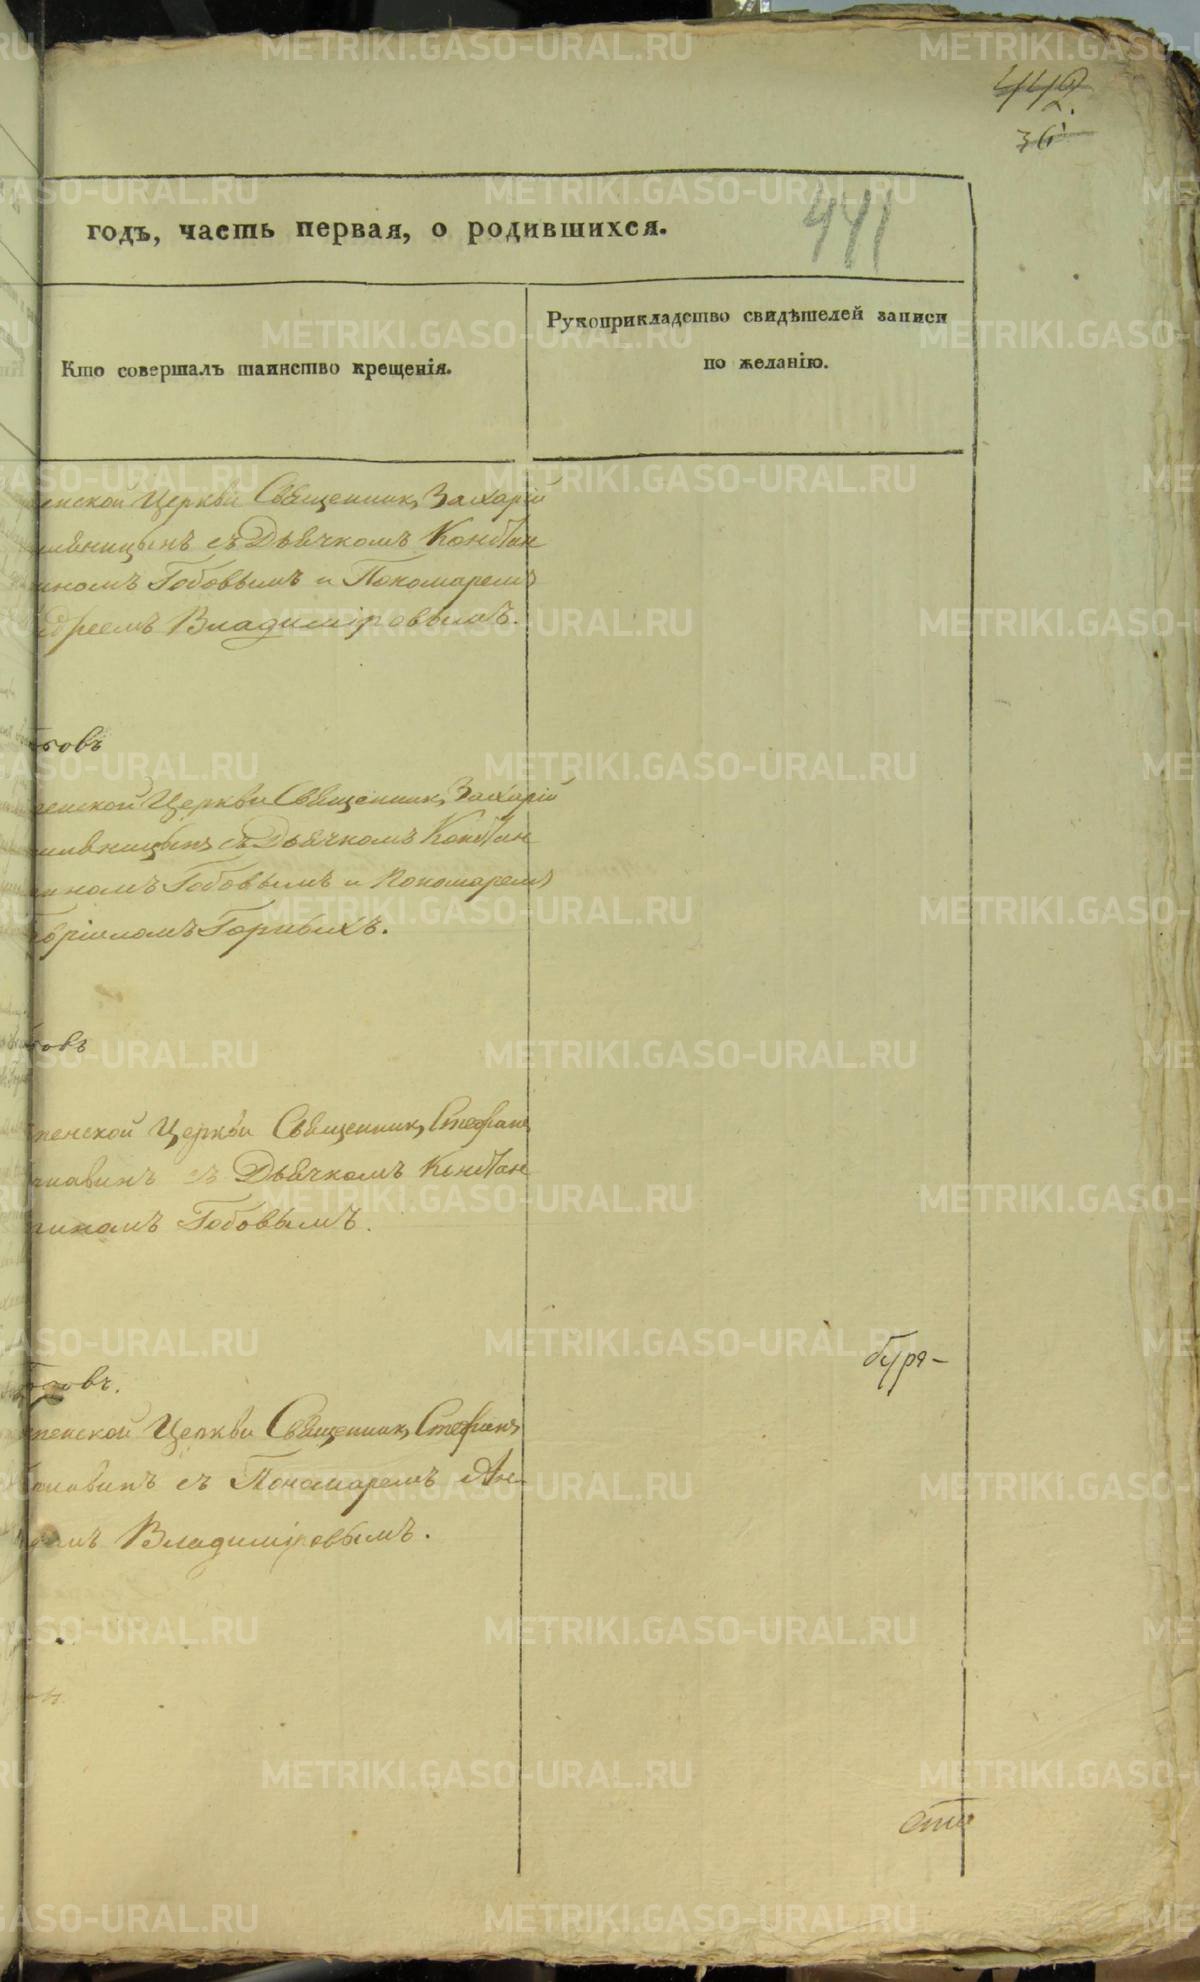 442
36
годъ, часть первая, о родившихся.
441
Кто совершалъ таинство крещенія.
Рукоприкладство свидѣтелей записи
по желанію.
енской Церкви Священникъ Захарій
съ Дьячкомъ Констан
иномъ Гобовымъ и Пономаремъ
дреемъ Владиміровымъ.
товъ
пенской Церкви Священникъ Захарій
съ Дьячкомъ Констан
иномъ Гобовымъ и Пономаремъ
вріиломъ Горныхъ.
товъ
пенской Церкви Священникъ Стефанъ
съ Дьячкомъ Констан
тиномъ Гобовымъ.
буря-
товъ.
пенской Церкви Священникъ Стефанъ
съ Пономаремъ Ан-
Владиміровымъ.
METRIKI.GASO-URAL.RU